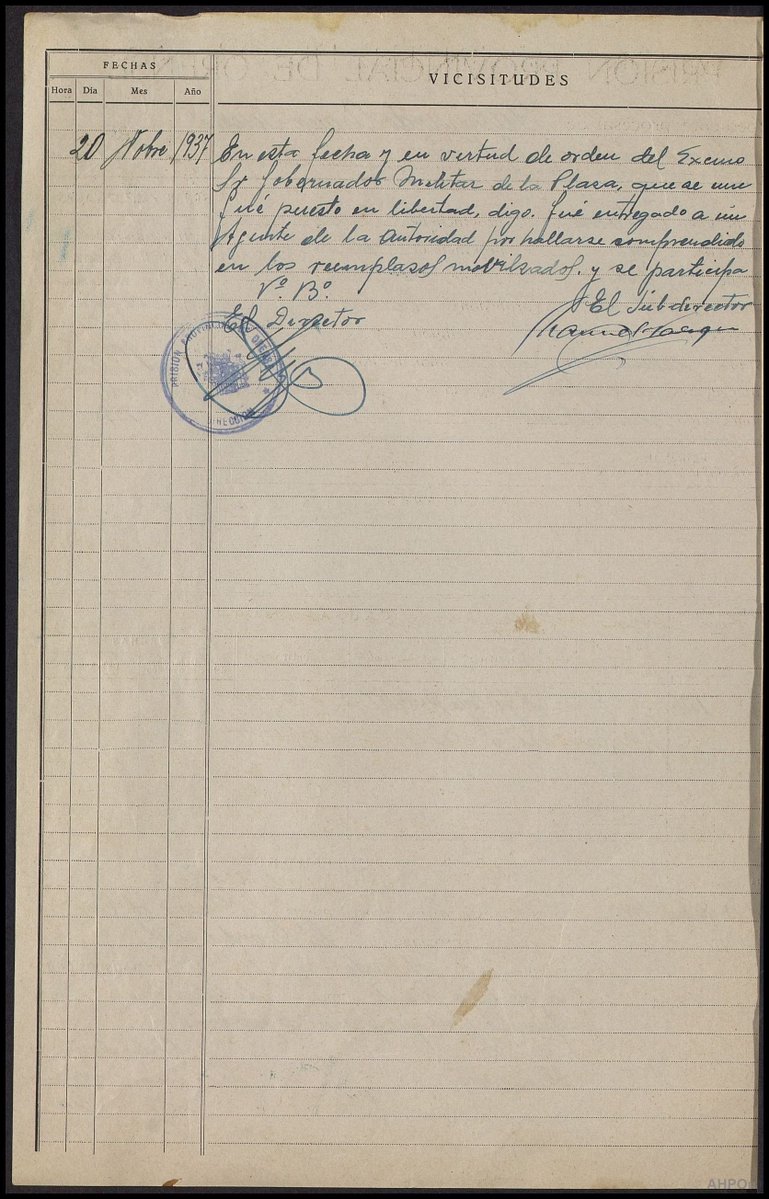 FECHAS
VICISITUDES
Hora Día Mes Año
20 Nobre 1937 En esta fecha y en virtud de orden del Excmo
Sr Gobernador Militar de la Plaza, que se une
fué puesto en libertad, digo. fué entregado a un
Agente de la Autoridad por hallarse comprendido
en los reemplazos movilizados. y se participa
Vº. Bº.
El Subdirector
El Director
PRISION PROVINCIAL DE ORENSE
DIRECCION
AHPOu